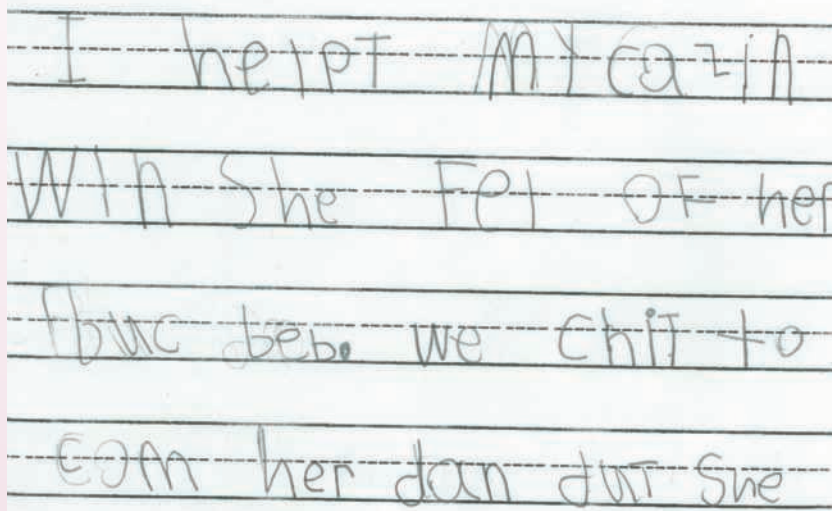 I helpt my cazin
Win She Fel OF her
buc beb. we chit to
com her dan but She